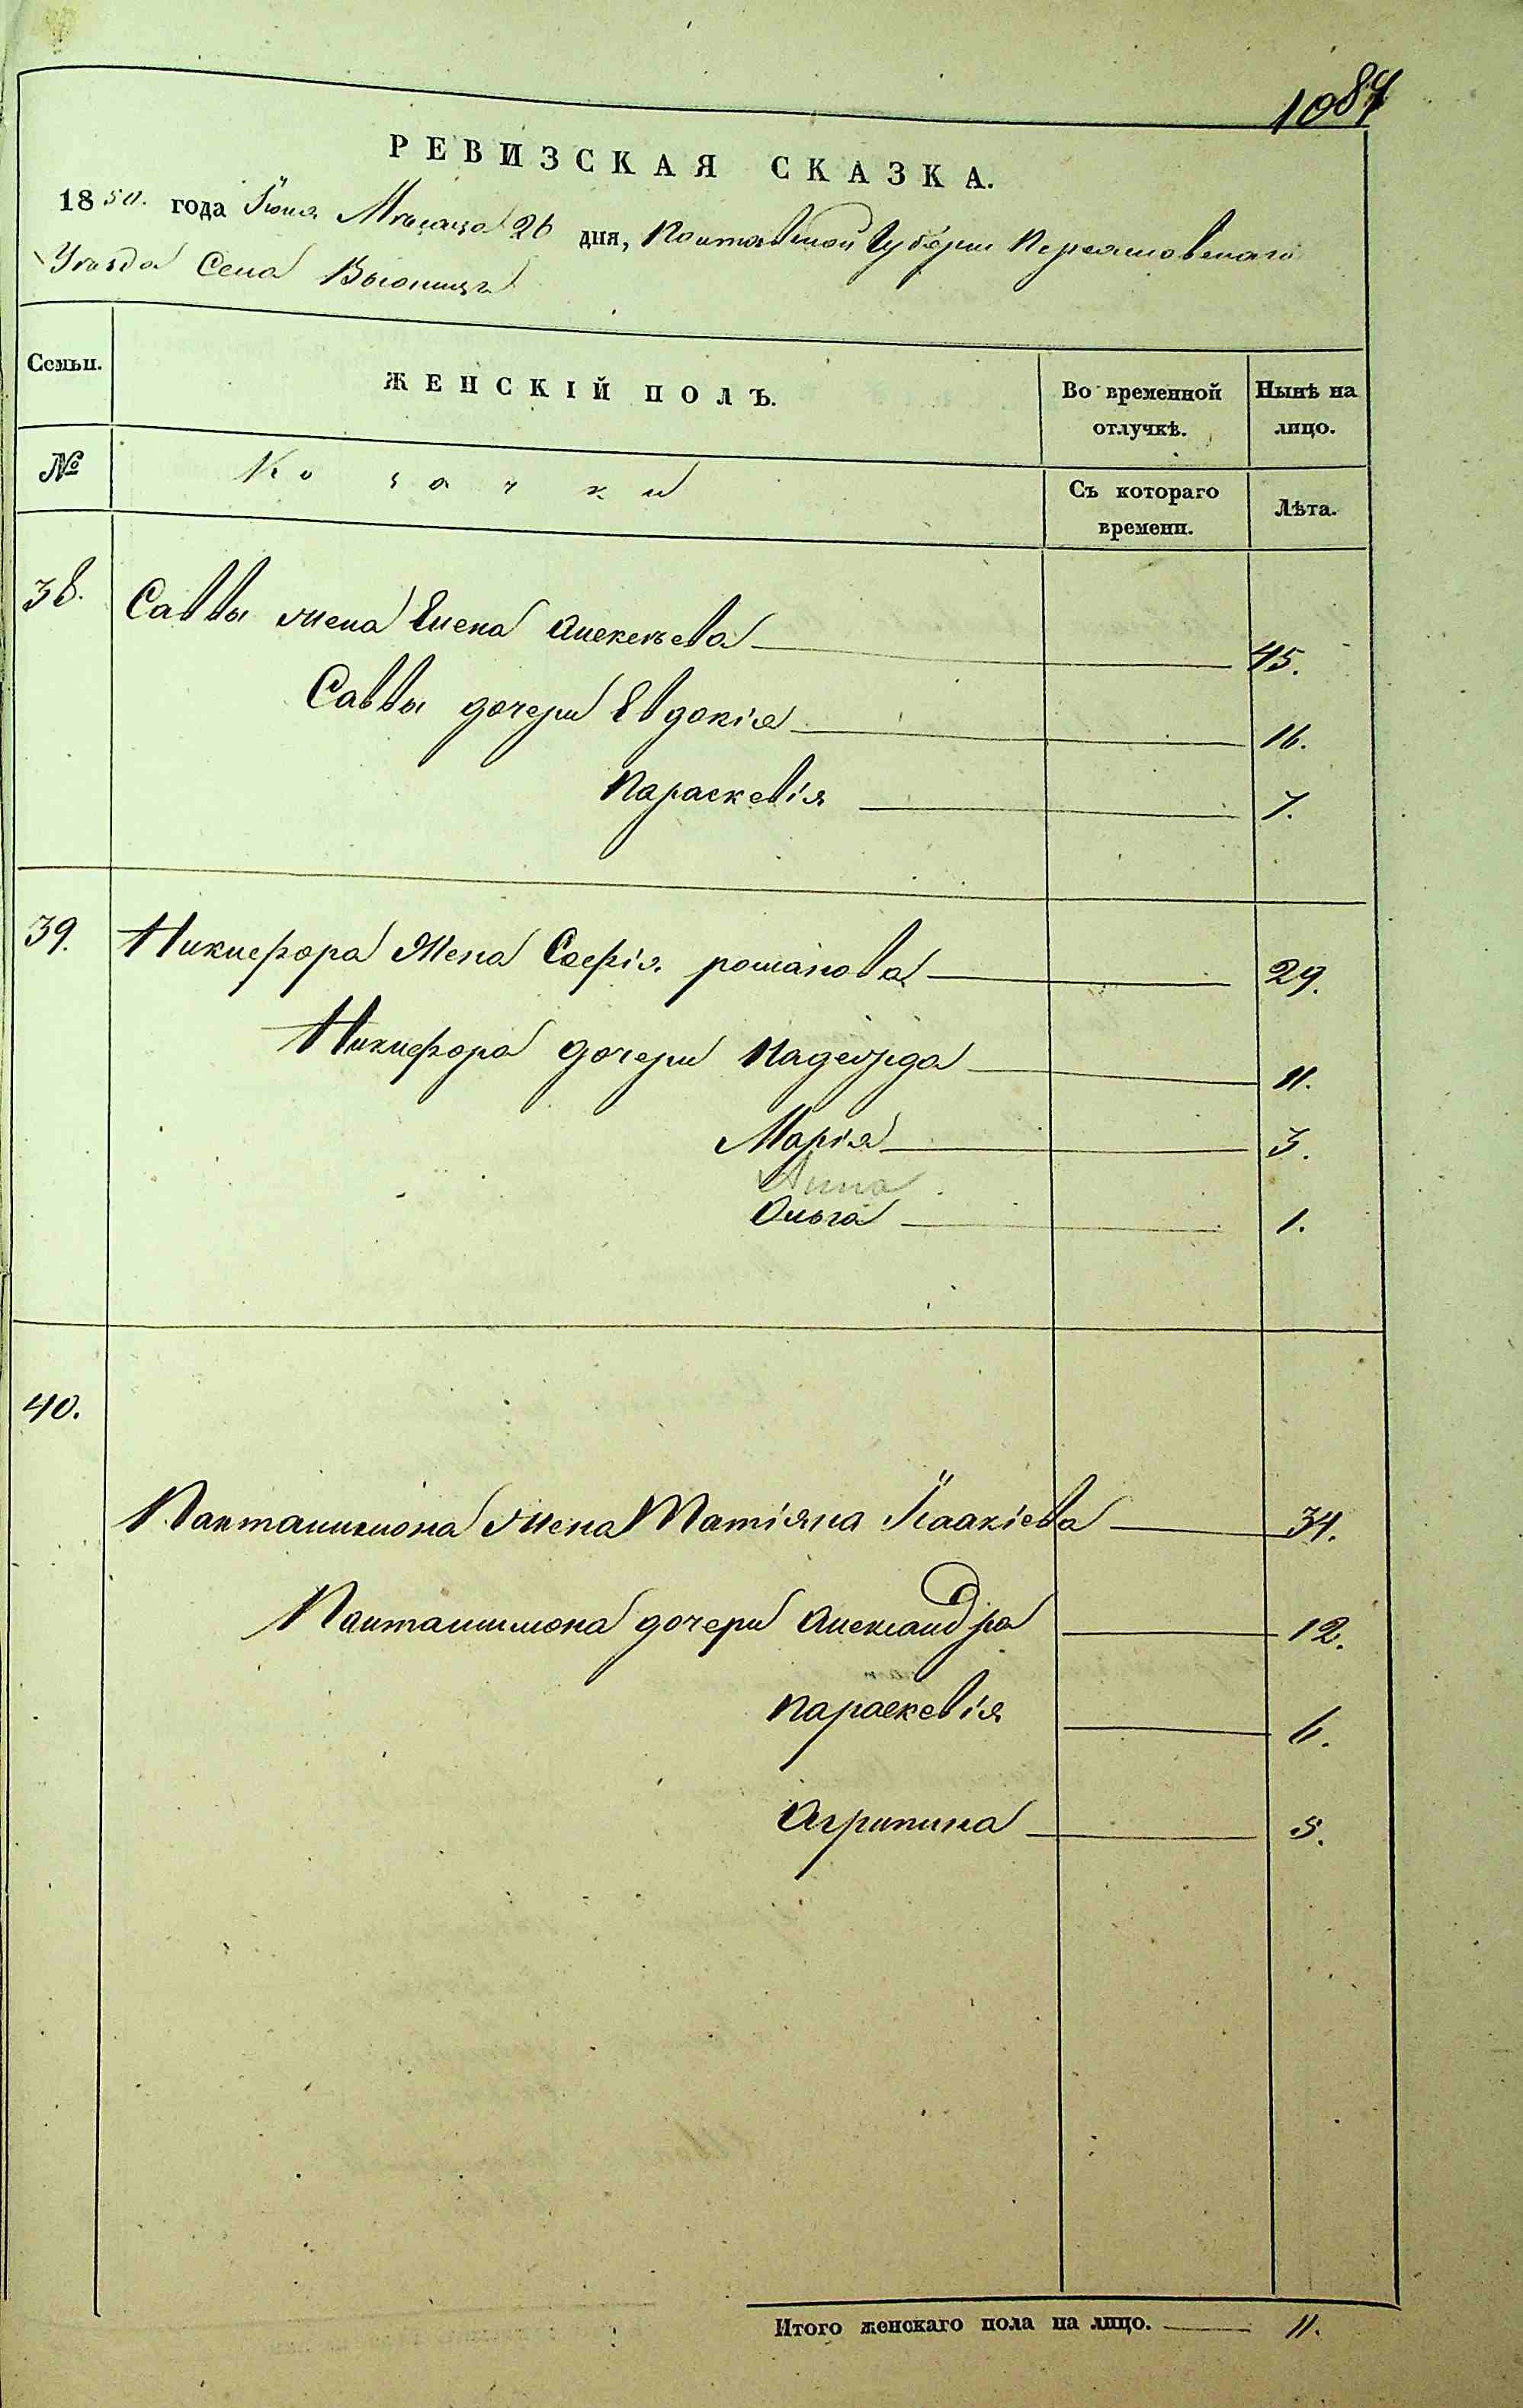 1087
РЕВИЗСКАЯ СКАЗКА.
1850. года Іюня Мѣсяца 26 дня, Полтавской Губерніи Переяславскаго
Уѣзда Села Вьюнищъ
Семьи. ЖЕНСКІЙ ПОЛЪ. Во временной отлучкѣ. Нынѣ на лицо.
№ Козачки Съ котораго времени. Лѣта.
38. Саввы жена Елена Алексѣева 45.
Саввы дочери Евдокія 16.
Параскевія 7.
39. Никифора Жена Софія романова 29.
Никифора дочери Надежда 11.
Марія 3.
Анна
Ольга 1.
40.
Пантелимона жена Татіяна Ісаакіева 34.
Пантелимона дочери Александра 12.
Параскевія 6.
Агрипина 5.
Итого женскаго пола на лицо. 11.